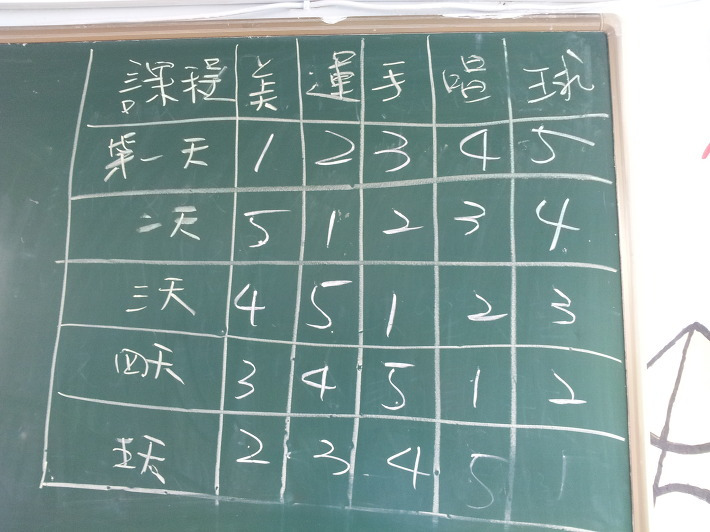 課程 美 運 手 唱 球
第一天 1 2 3 4 5
二天 5 1 2 3 4
三天 4 5 1 2 3
四天 3 4 5 1 2
五天 2 3 4 5 1